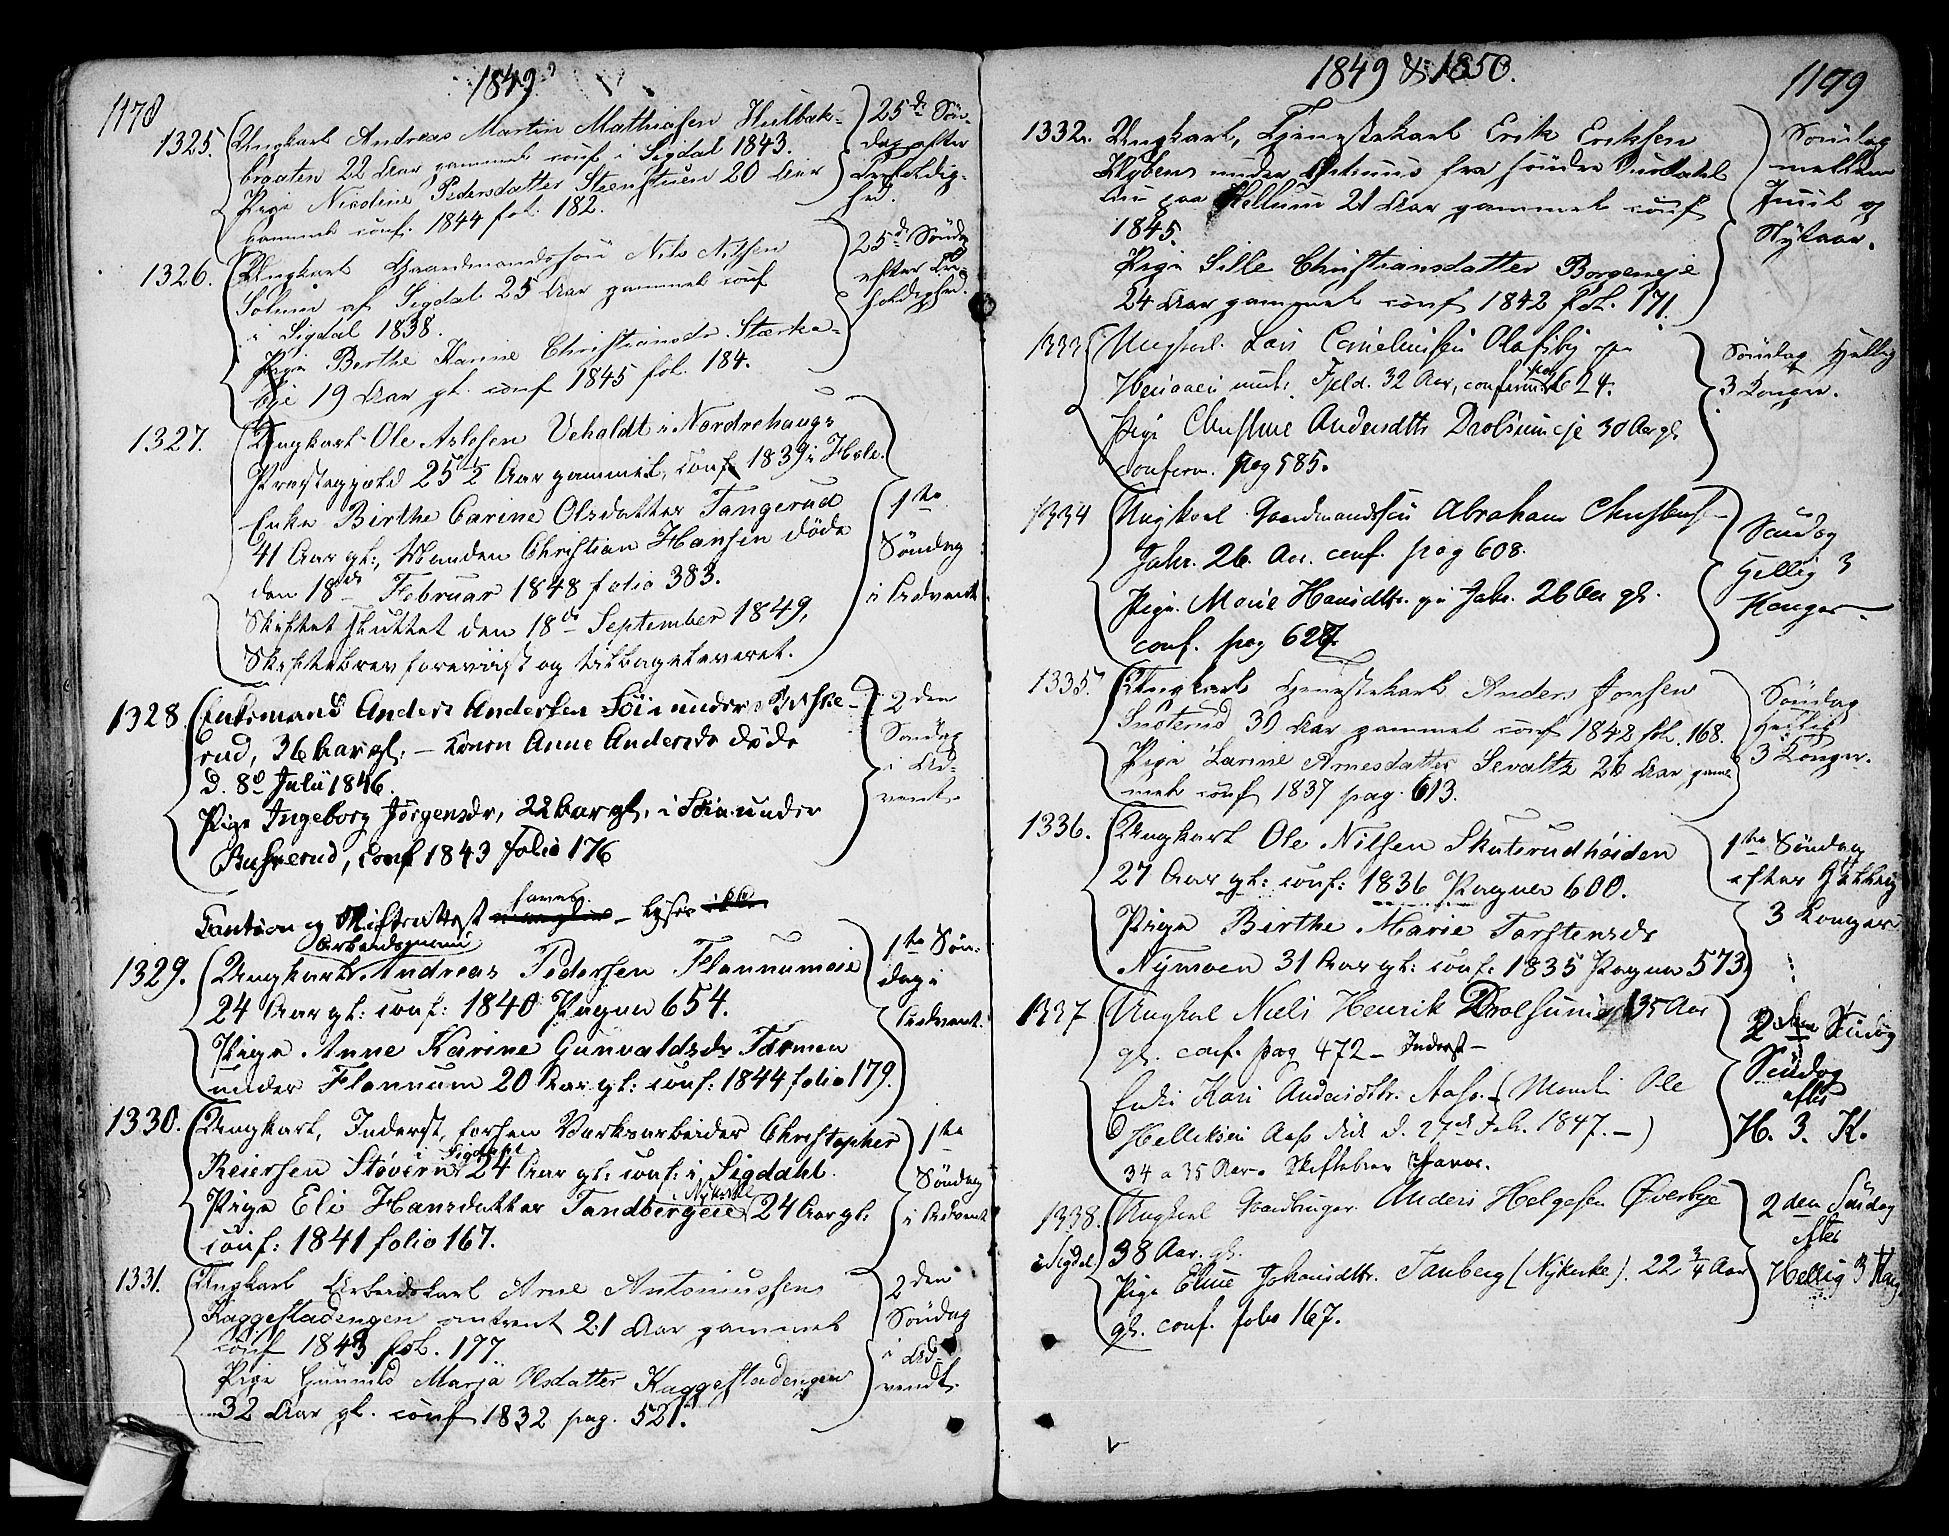 1178
1849
1325. Ungkarl Andreas Martin Mathiasen Hulbak-
braaten 22 Aar gammel conf i Sigdal 1843.
Pige Nicoline Pedersdatter Steenstuen 20 Aar
gammel conf. 1844 fol. 182.
25de Søn-
dag efter
Trefoldig-
hed.
1326. Ungkarl Gaardmandssøn Nils Nilsen
Solum af Sigdal 25 Aar gammel conf
i Sigdal 1838.
Pige Berthe Karine Christiansdr. Stærke-
eje 19 Aar gl. conf 1845 fol. 184.
25de Søndag
efter Tre-
foldighed.
1327. Ungkarl Ole Aslesen Veholdt i Nordrehaugs
Præstegjeld 25 1/2 Aar gammel, conf 1839 i Hole.
Enke Birthe Carine Olsdatter Tangerud
41 Aar gl:, Manden Christian Hansen døde
den 18de Februar 1848 folio 383.
Skiftet sluttet den 18de September 1849,
Skiftebrev foreviist og tilbageleveret.
1ste
Søndag
i Advent
1328 Enkemand Anders Andersen Söi under Buske-
rud, 36 Aar gl. – Konen Anne Andersdr døde
d. 8de Julii 1846.
Pige Ingeborg Jörgensdr, 22 Aar gl, i Söia under
Buskerud, conf 1843 folio 176
2den
Søndag
i Ad-
vent.
Caution og Skifteattest haves.
1329. Ungkarl Arbeidsmand Andreas Pedersen Flannumeie
24 Aar gl: conf: 1840 Pagina 654.
Pige Anne Karine Gunvaldsdr Tormen
under Flannum 20 Aar gl: conf: 1844 folio 179.
1ste Søn-
dag i
Advent.
1330. Ungkarl, Inderst, forhen Værksarbeider Christopher
Reiersen Støvern i Sigdahl 24 Aar gl: conf: i Sigdahl.
Pige Eli Hansdatter Tandbergeie i Nykirke 24 Aar gl:
conf: 1841 folio 167.
1ste
Søndag
i Advent
1331. Ungkarl Arbeidskarl Arne Antoniussen
Kaggestadengen omtrent 21 Aar gammel
conf 1843 fol. 177.
Pige Gunnild Marja Olsdatter Kaggestadengen
32 Aar gl. conf 1832 pag. 521.
2den
Søndag
i Ad-
vendt.
1849 & 1850.
1179
1332. Ungkarl, Tjenestekarl Erik Eriksen
under fra søndre
nu paa Hellum 21 Aar gammel conf
1845.
Pige Sille Christiansdatter Borgeneje
24 Aar gammel conf 1842 fol. 171.
Søndag
mellem
Juul og
Nytaar.
1333 Ungkarl Lars Corneliusen Olafsby
Fjeld. 32 Aar, confirm. pag 624.
Pige Christine Andersdttr Drolsumeje 30 Aar gl
conferm. pag 585.
Søndag Hellig
3 Konger.
1334 Ungkarl Gaardmandssøn Abraham Christens.
Jahr. 26 Aar. conf. pag 608.
Pige Marie Hansdttr. Jahr. 26 Aar gl.
conf. pag 627.
Søndag
Hellig 3
Konger
1335. Ungkarl Tjenestekarl Anders Jonsen
Snoterud 30 Aar gammel conf 1842 fol. 168.
Pige Karine Arnesdatter Sevalts 26 Aar gam-
mel conf 1837 pag. 613.
Søndag
Hellig
3 Konger.
1336. Ungkarl Ole Nilsen Skuterudhøiden
27 Aar gl: conf: 1836 Pagina 600.
Pige Birthe Marie Torstensdr
Nymoen 31 Aar gl: conf: 1835 Pagina 573.
1ste Søndag
efter Hellig
3 Konger
1337 Ungkarl Niels Henrik Drolsum 35 Aar
gl. conf. pag 472 – Inderst –
Enke Kari Andersdttr. Aass. (Manden Ole
Helleksen Aass død d. 27de Feb. 1847. –)
34 a 35 Aar. Skiftebrev haves.
2den Søndag
Søndag
efter
H. 3. K.
1338. Ungkarl Gaardbruger Anders Helgesen Øverbye
i Sigdal) 38 Aar. gl.
Pige Eline Johansdttr. Tanberg (Nykirke). 22 3/4 Aar
gl. conf. folio 167.
2den Søndag
efter
Hellig 3 Kong